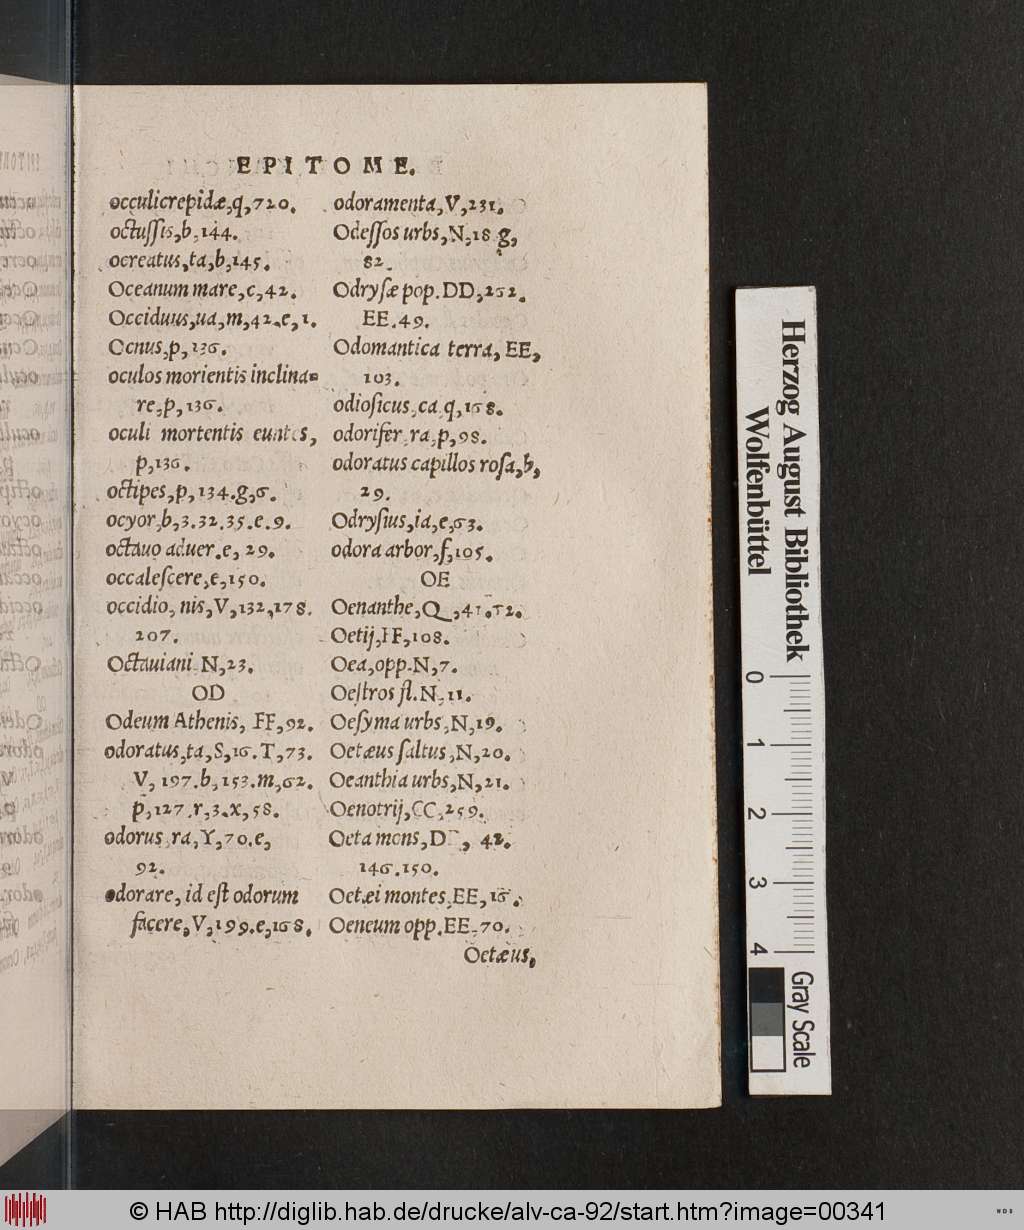 EPITOME.
occulicrepidæ,q,720.
octuſſis,b,144.
ocreatus,ta,b,145.
Oceanum mare,c,42.
Occiduus,ua,m,42.e,1.
Ocnus,p,136.
oculos morientis inclina=
re,p,136.
oculi mortentis euntes,
p,136.
octipes,p,134.g,6.
ocyor,b,3.32.35.e.9.
octauo aduer.e, 29.
occaleſcere,e,150.
occidio, nis,V,132,178.
207.
Octauiani N,23.
OD
Odeum Athenis, FF,92.
odoratus,ta,S,16.T,73.
V, 197.b,153.m,62.
p,127.r,3.x,58.
odorus ra,Y,70.e,
92.
odorare, id eſt odorum
facere,V,199.e,168.
odoramenta,V,231.
Odeſſos urbs,N,18 g,
82.
Odryſæ pop.DD,252.
EE.49.
Odomantica terra, EE,
103.
odioſicus,ca q,168.
odorifer,ra,p,98.
odoratus capillos roſa,b,
29.
Odryſius,ia,e,63.
odora arbor,f,105.
OE
Oenanthe,Q,41.52.
Oetij,FF,108.
Oea,opp.N,7.
Oeſtros fl.N,11.
Oeſyma urbs,N,19.
Oetæus ſaltus,N,20.
Oeanthia urbs,N,21.
Oenotrij,CC,259.
Oeta mons, 42.
146.150.
Oetæi montes,EE,16.
Oeneum opp.EE,70.
Oetæus,
Herzog August Bibliothek
Wolfenbüttel
0 1 2 3 4
Gray Scale
© HAB http://diglib.hab.de/drucke/alv-ca-92/start.htm?image=00341